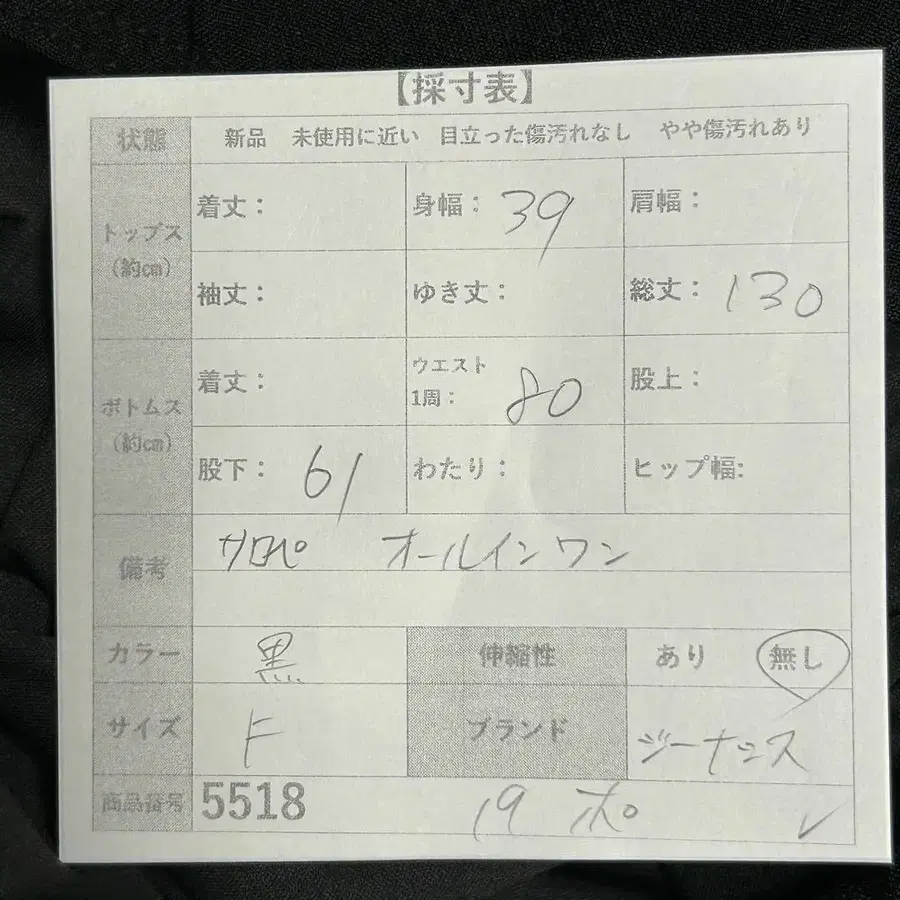 【採寸表】
状態 新品 未使用に近い 目立った傷汚れなし やや傷汚れあり
トップス(約㎝) 着丈： 身幅：39 肩幅：
袖丈： ゆき丈： 総丈：130
ボトムス(約㎝) 着丈： ウエスト1周：80 股上：
股下：61 わたり： ヒップ幅:
備考 サロペ オールインワン
カラー 黒 伸縮性 あり 無し
サイズ F ブランド ジーナシス
商品番号 5518 19 ポ